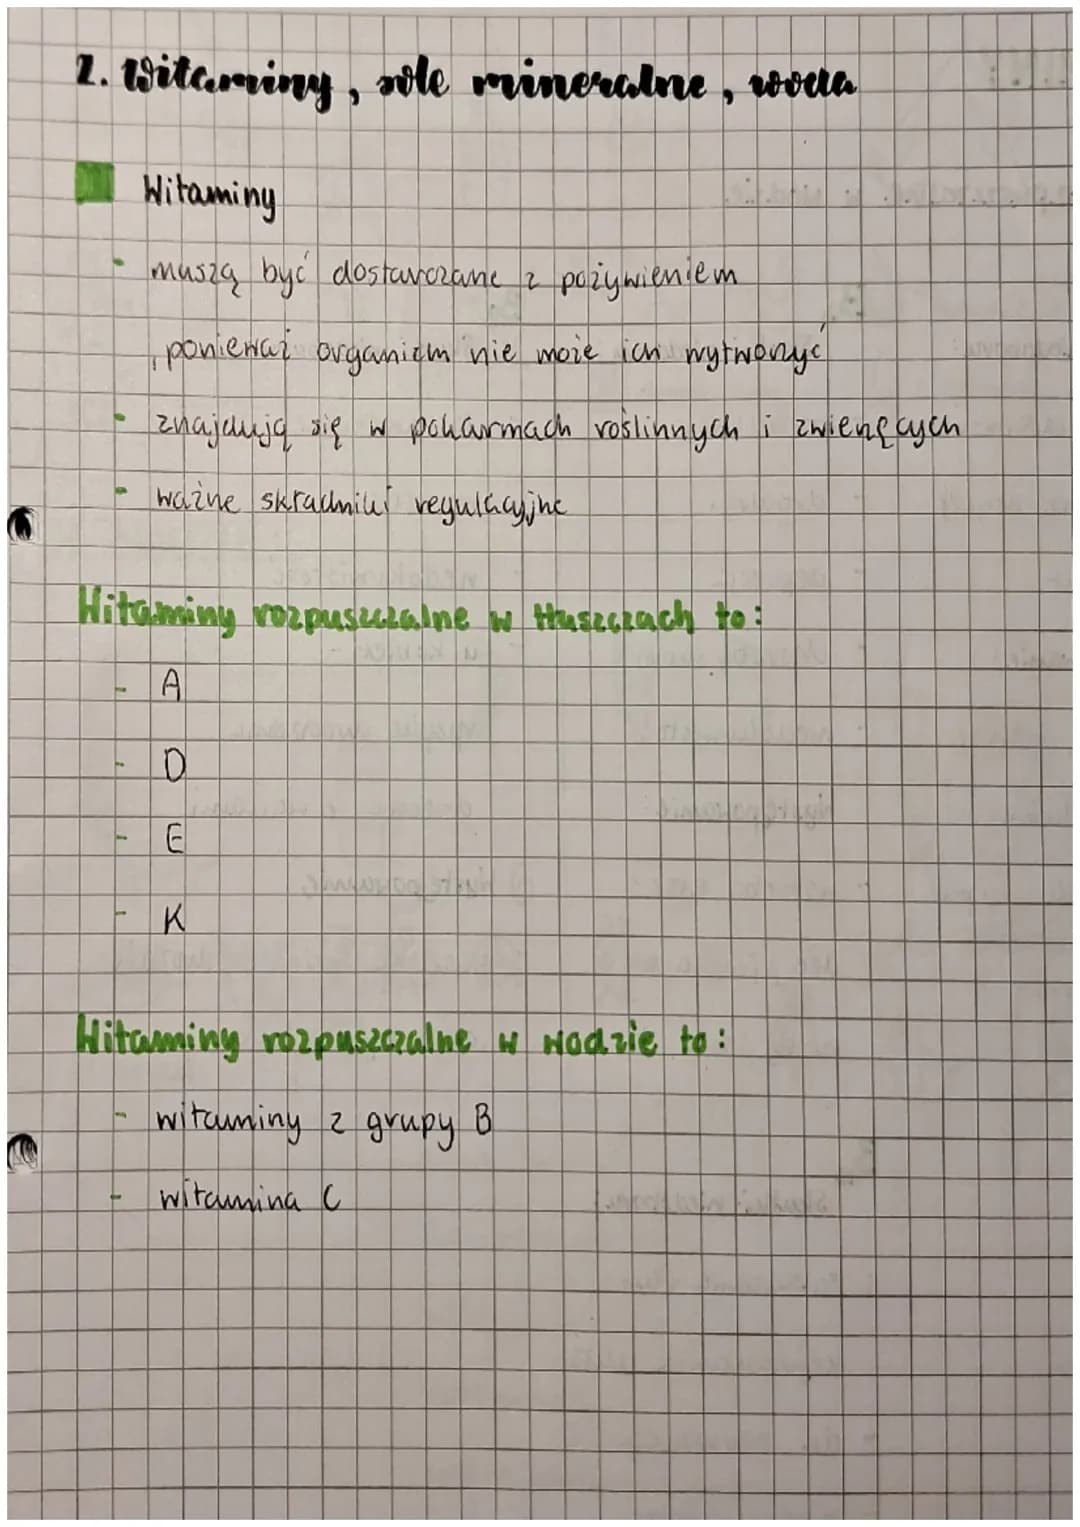 2. Witaminy, sole mineralne, woda
Witaminy
- muszą być dostarczane z pożywieniem
, ponieważ organizm nie może ich wytworzyć
- znajdują się w pokarmach roślinnych i zwierzęcych
- ważne składniki regulacyjne
Witaminy rozpuszczalne w tłuszczach to:
- A
- D
- E
- K
Witaminy rozpuszczalne w wodzie to:
- witaminy z grupy B
- witamina C